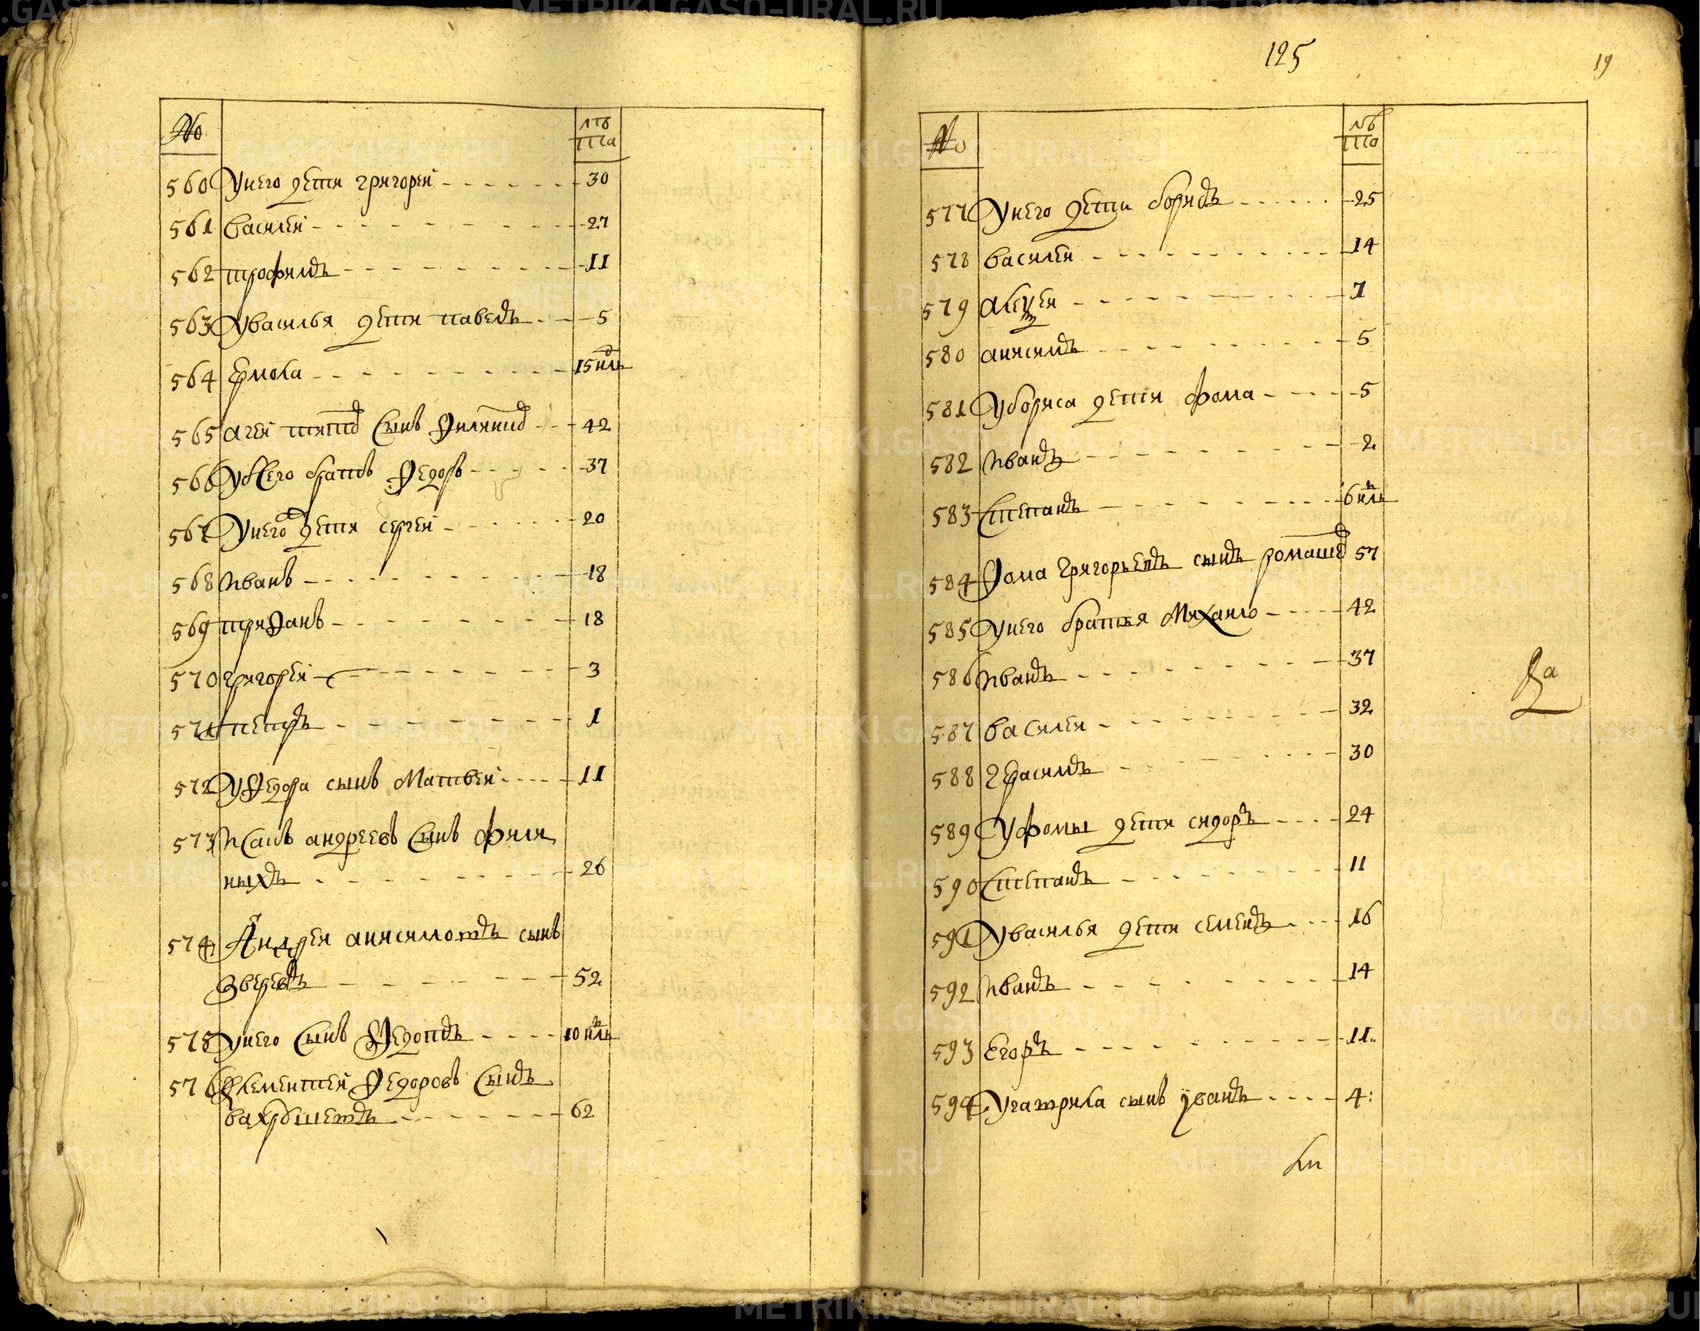 №
лѣта
560 У него дети григорей 30
561 василей 27
562 трофимъ 11
563 У василья дети павелъ 5
564 Ермола 15 нль
565 агей сынъ 42
566 У него братъ Ѳедоръ 37
567 У него дети сергей 20
568 иванъ 18
569 триѳанъ 18
570 григорей 3
571 петръ 1
572 У Ѳедора сынъ Матвей 11
573 Исакъ андреевъ сынъ фили
ныхъ 26
574 Андрей анисимовъ сынъ
Зверевъ 52
575 У него сынъ Ѳедотъ 10 нль
576 Клементей Ѳедоровъ сынъ
вахрушевъ 62
125
19
№
лѣта
577 У него дети борисъ 25
578 василей 14
579 Авдей 7
580 анисимъ 5
581 У бориса дети фома 5
582 иванъ 2
583 Степанъ 6 нль
584 Ѳома Григорьевъ сынъ 57
585 У него братья Михайло 42
586 иванъ 37
587 василей 32
588 Герасимъ 30
589 У фомы дети сидоръ 24
590 Степанъ 11
591 У василья дети семенъ 16
592 иванъ 14
593 Егоръ 11
594 У гаврила сынъ иванъ 4